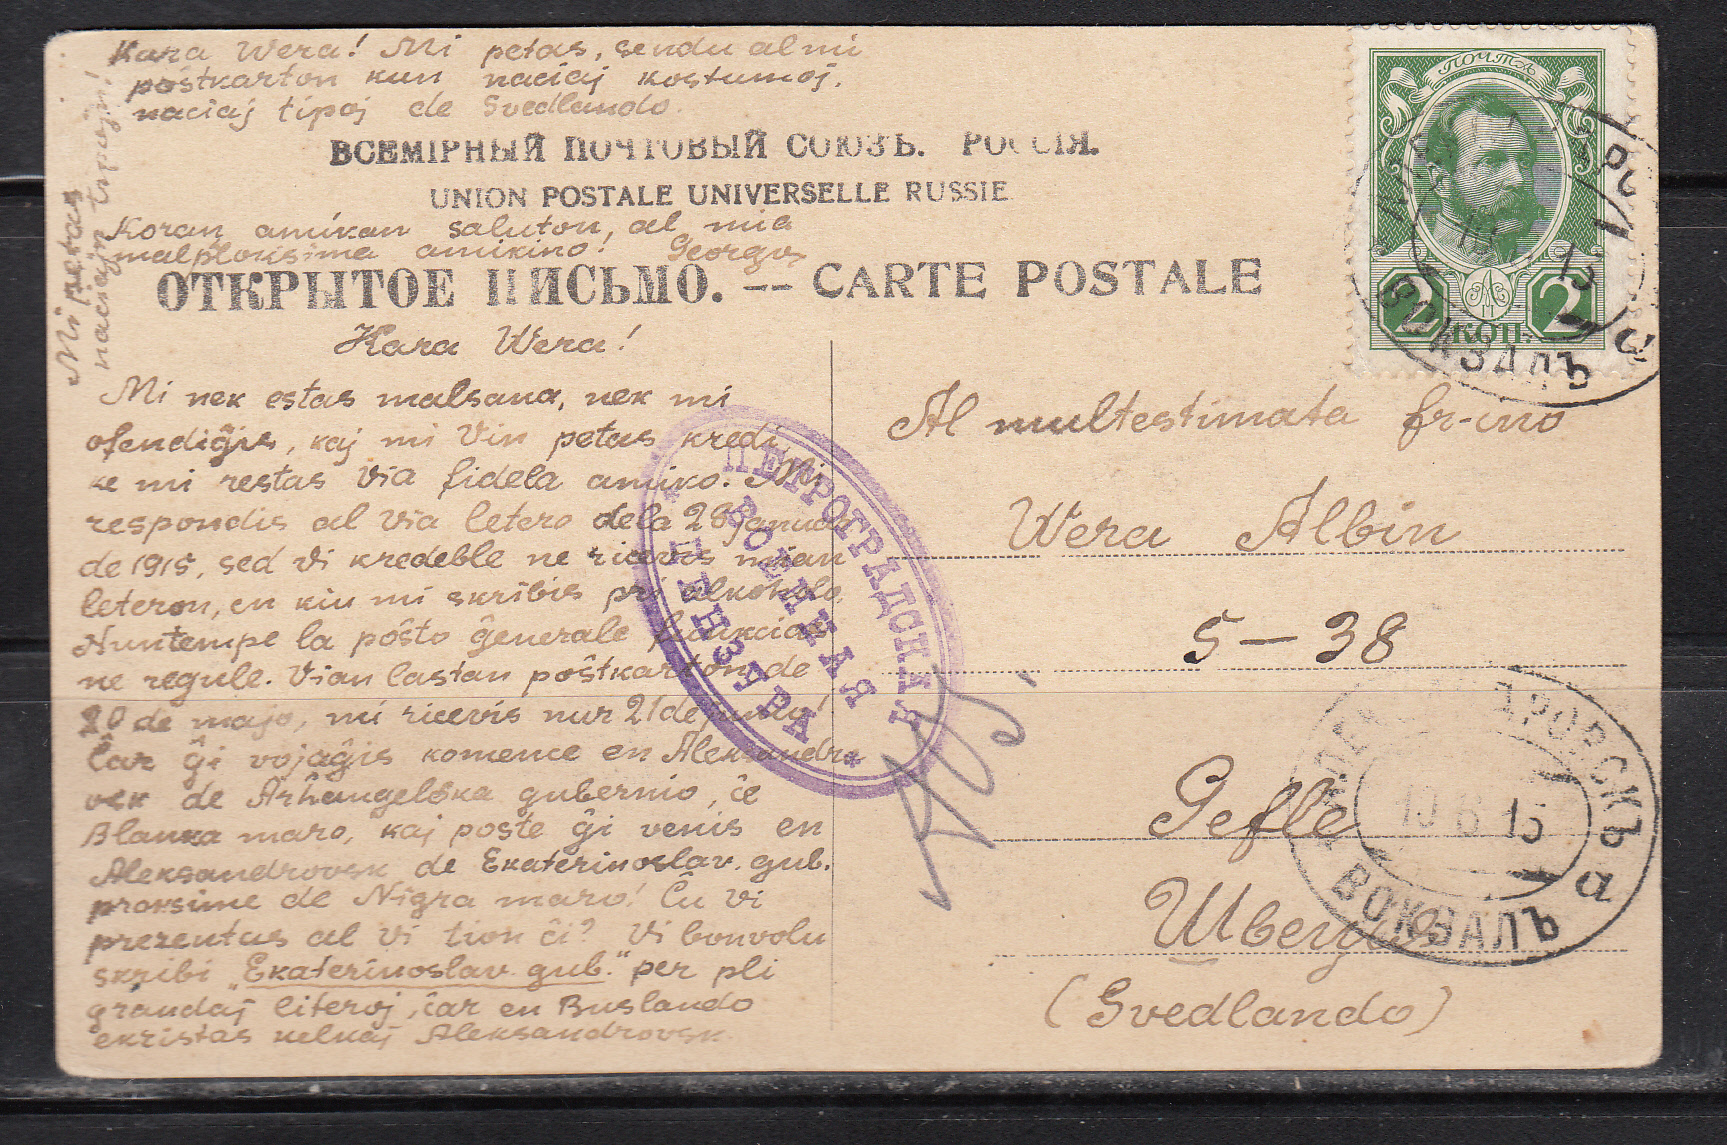 Kara Wera! Mi petas, sendu al mi
poŝtkarton kun naciaj kostumoj,
naciaj tipoj de Svedlando.
ВСЕМІРНЫЙ ПОЧТОВЫЙ СОЮЗЪ. РОССІЯ.
UNION POSTALE UNIVERSELLE RUSSIE
Koran amikan saluton, al mia
amikino! Georgos
ОТКРЫТОЕ ПИСЬМО. -- CARTE POSTALE
Mi petas
naciajn tipojn!
Kara Wera!
Mi nek estas malsana, nek mi
ofendiĝis, kaj mi Vin petas kredi
ke mi restas Via fidela amiko. Mi
respondis al Via letero de la 28 Januaro
de 1915, sed Vi kredeble ne ricevis mian
leteron, en kiu mi skribis pri alkoholo.
Nuntempe la poŝto ĝenerale funkcias
ne regule. Vian lastan poŝtkarton de
20 de majo, mi ricevis nur 21 de junio!
Ĉar ĝi vojaĝis komence en Aleksandro
vsk de Arĥangelska gubernio, ĉe
Blanka maro, kaj poste ĝi venis en
Aleksandrovsk de Ekaterinoslav. gub.
proksime de Nigra maro! Ĉu vi
prezentas al Vi tion ĉi? Vi bonvolu
skribi „Ekaterinoslav. gub." per pli
grandaj literoj, ĉar en Ruslando
ekzistas kelkaj Aleksandrovsk.
Al multestimata fr-ino
Wera Albin
5-38
Gefle
(Svedlando)
ПОЧТА
2 КОП. 2
15
ВОКЗАЛЪ
а
ПЕТРОГРАДСКАЯ
ВОЕННАЯ
ЦЕНЗУРА
АЛЕКСАНДРОВСКЪ
10 6 15
ВОКЗАЛЪ
а